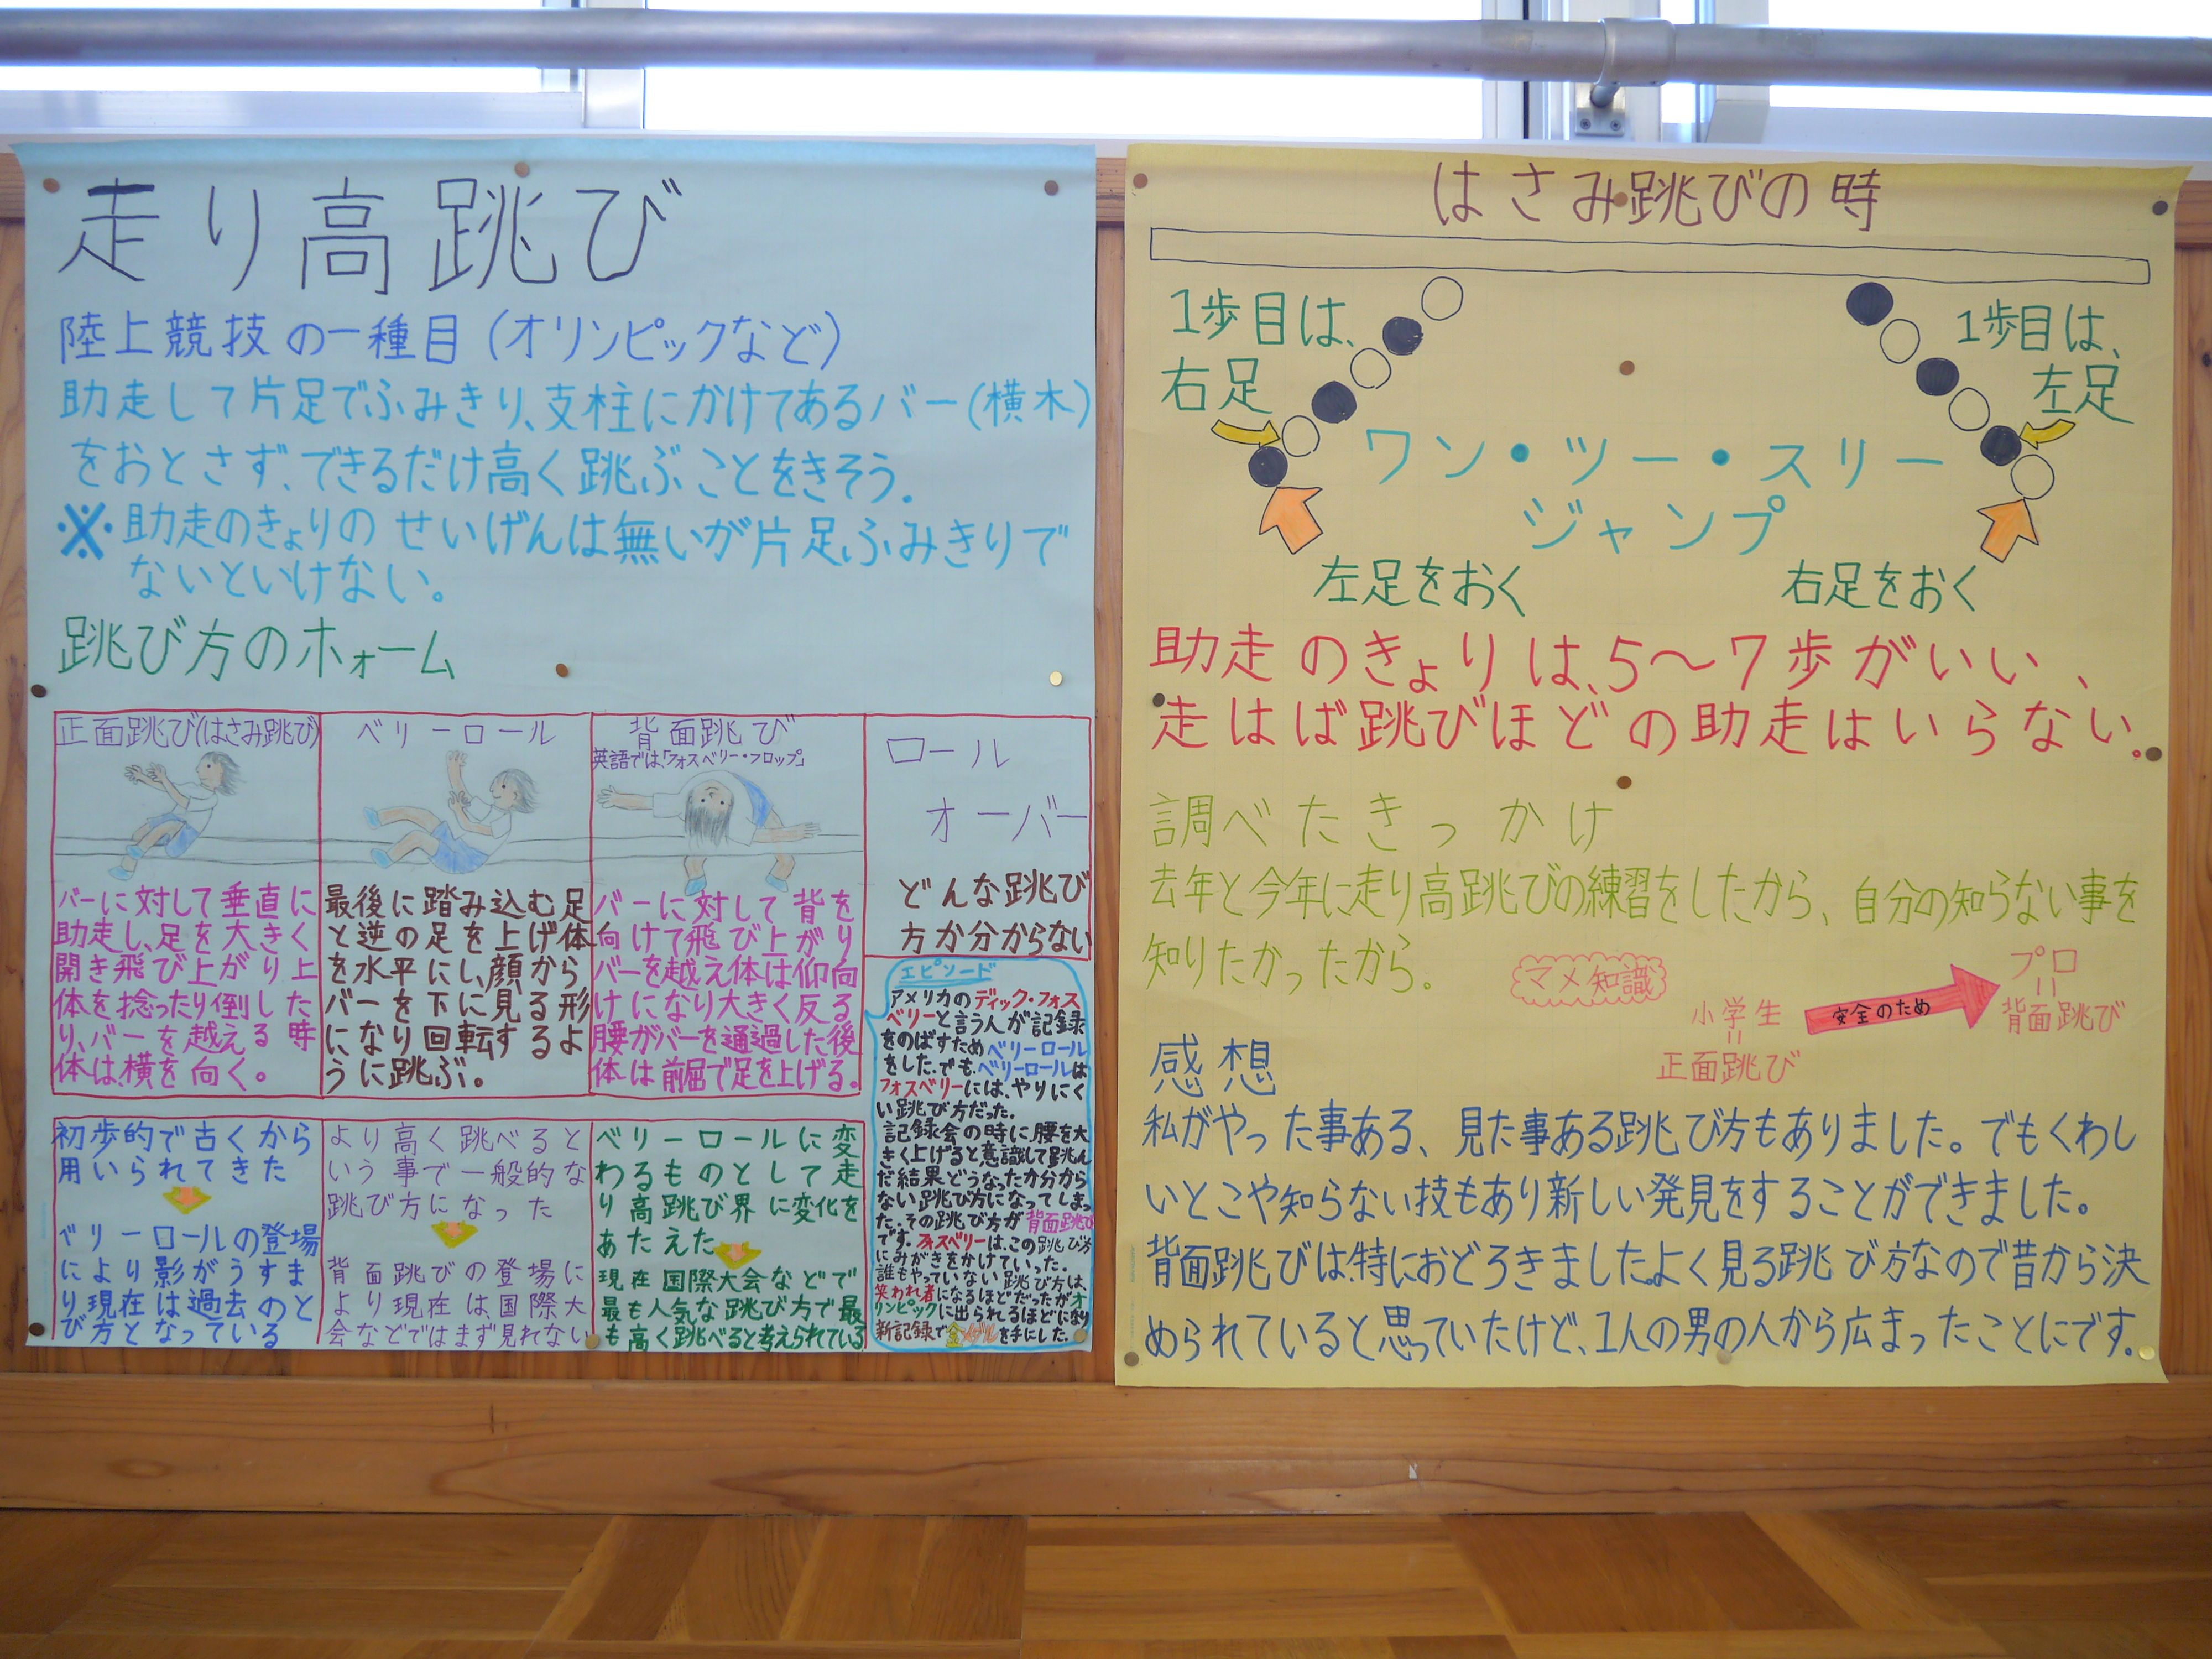 走り高跳び
陸上競技の一種目(オリンピックなど)
助走して片足でふみきり、支柱にかけてあるバー(横木)
をおとさず、できるだけ高く跳ぶことをきそう.
※助走のきょりのせいげんは無いが片足ふみきりで
ないといけない。
跳び方のホォーム
正面跳び(はさみ跳び)
バーに対して垂直に
助走し、足を大きく
開き飛び上がり上
体を捻ったり倒した
り、バーを越える時
体は、横を向く。
ベリーロール
最後に踏み込む足
と逆の足を上げ体
を水平にし、顔から
バーを下に見る形
になり回転するよ
うに跳ぶ。
背面跳び
英語では、「フォスベリー・フロップ」
バーに対して背を
向けて飛び上がり
バーを越え体は仰向
けになり大きく反る
腰がバーを通過した後
体は前屈で足を上げる。
ロール
オーバー
どんな跳び
方か分からない
初歩的で古くから
用いられてきた
ベリーロールの登場
により影がうすま
り、現在は過去のと
び方となっている
より高く跳べると
いう事で一般的な
跳び方になった
背面跳びの登場に
より現在は国際大
会などではまず見れない
ベリーロールに変
わるものとして走
り高跳び界に変化を
あたえた
現在国際大会などで
最も人気な跳び方で最
も高く跳べると考えられている
エピソード
アメリカのディック・フォス
ベリーと言う人が記録
をのばすためベリーロール
をした.でも、ベリーロールは
フォスベリーには、やりにく
い跳び方だった.
記録会の時に、腰を大
きく上げると意識して跳ん
だ結果どうなったか分から
ない跳び方になってしまっ
た.その跳び方が背面跳び
です.フォスベリーは、この跳び方
にみがきをかけていった.
誰もやっていない跳び方は、
笑われ者になるほどだったがオ
リンピックに出られるほどになり
新記録で金メダルを手にした.
はさみ跳びの時
1歩目は、
右足
1歩目は、
左足
ワン・ツー・スリー
ジャンプ
左足をおく
右足をおく
助走のきょりは、5〜7歩がいい、
走はば跳びほどの助走はいらない。
調べたきっかけ
去年と今年に走り高跳びの練習をしたから、自分の知らない事を
知りたかったから.
マメ知識
小学生
=
正面跳び
安全のため
プロ
=
背面跳び
感想
私がやった事ある、見た事ある跳び方もありました。でもくわし
いとこや知らない技もあり新しい発見をすることができました。
背面跳びは、特におどろきました。よく見る跳び方なので昔から決
められていると思っていたけど、1人の男の人から広まったことにです。